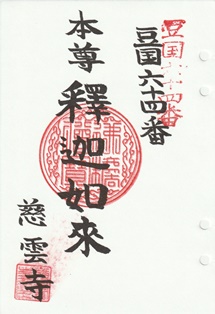 豆国六十四番
豆国六十四番
本尊 釋迦如來
慈雲寺